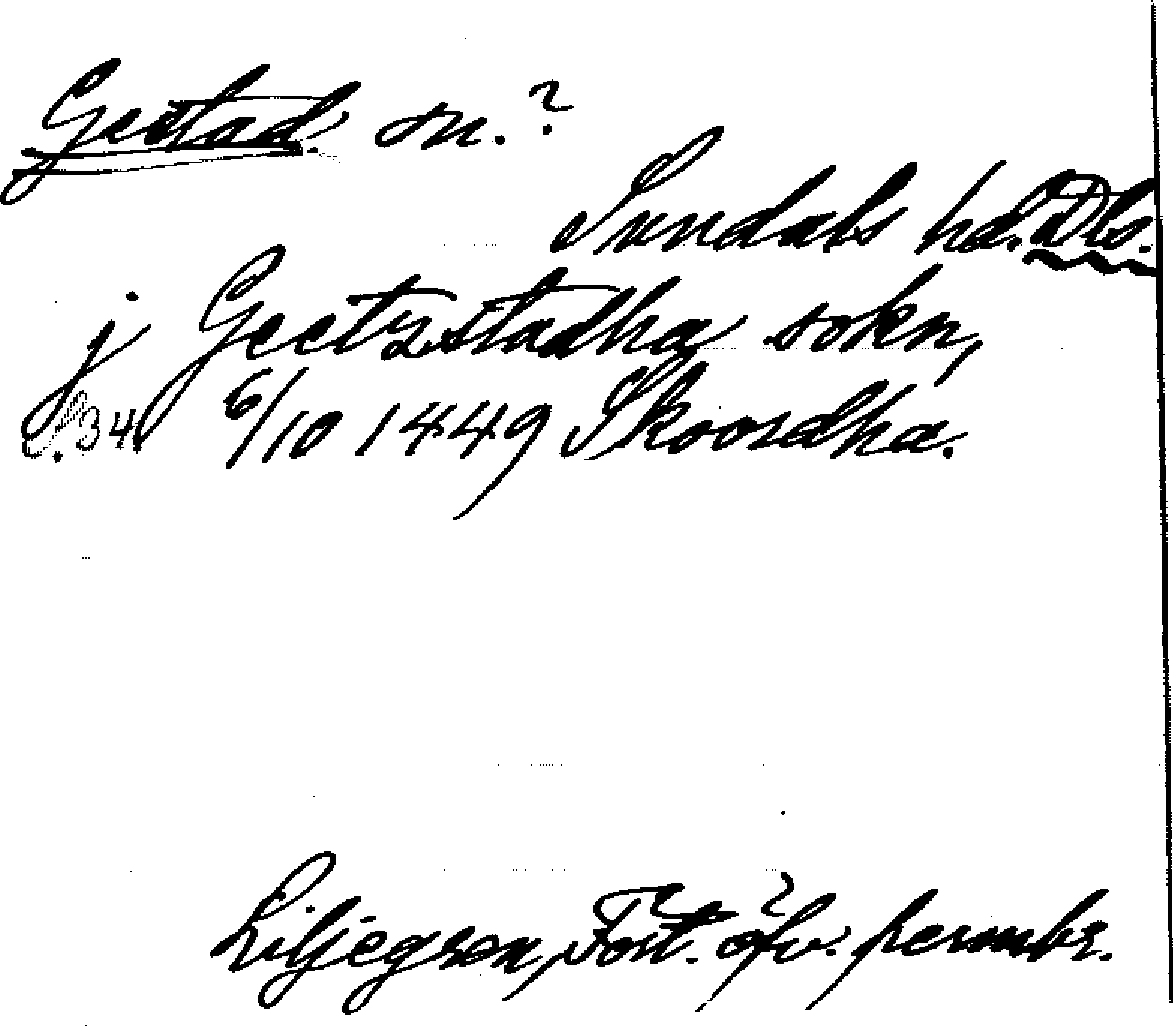 Gestad sn.?
Sundals hd. Dls.
j Geetzstadha sokn,
s. 34 6/10 1449 Skoordha.
Liljegren, Fört. öfv. permbr.